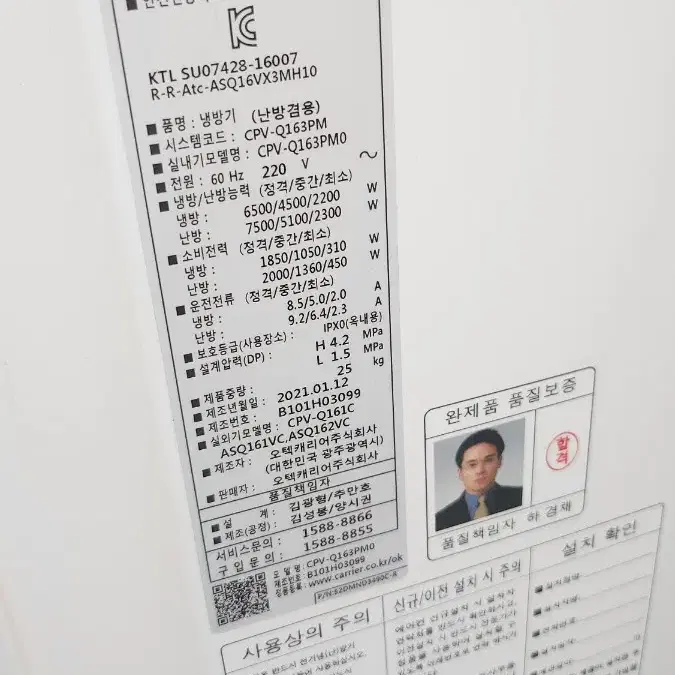 KTL SU07428-16007
R-R-Atc-ASQ16VX3MH10
■ 품명 : 냉방기 (난방겸용)
■ 시스템코드 : CPV-Q163PM
■ 실내기모델명 : CPV-Q163PM0
■ 전원 : 60 Hz 220 V ~
■ 냉방/난방능력 (정격/중간/최소)
냉방 : 6500/4500/2200 W
난방 : 7500/5100/2300 W
■ 소비전력 (정격/중간/최소)
냉방 : 1850/1050/310 W
난방 : 2000/1360/450 W
■ 운전전류 (정격/중간/최소)
냉방 : 8.5/5.0/2.0 A
난방 : 9.2/6.4/2.3 A
■ 보호등급(사용장소) : IPX0(옥내용)
■ 설계압력(DP) : H 4.2 MPa
L 1.5 MPa
■ 제품중량 : 25 kg
■ 제조년월일 : 2021.01.12
■ 제조번호 : B101H03099
■ 실외기모델명 : CPV-Q161C
ASQ161VC,ASQ162VC
■ 제조자 : 오텍캐리어주식회사
(대한민국 광주광역시)
■ 판매자 : 오텍캐리어주식회사
품질책임자
■ 설 계 : 김광형/추만호
■ 제조(공정) : 김성봉/양시권
서비스문의 : 1588-8866
구입문의 : 1588-8855
모델명 : CPV-Q163PM0
제조번호 : B101H03099
www.carrier.co.kr/ok
완제품 품질보증
합격
품질책임자 하경채
사용상의 주의
신규/이전 설치 시 주의
설치 확인